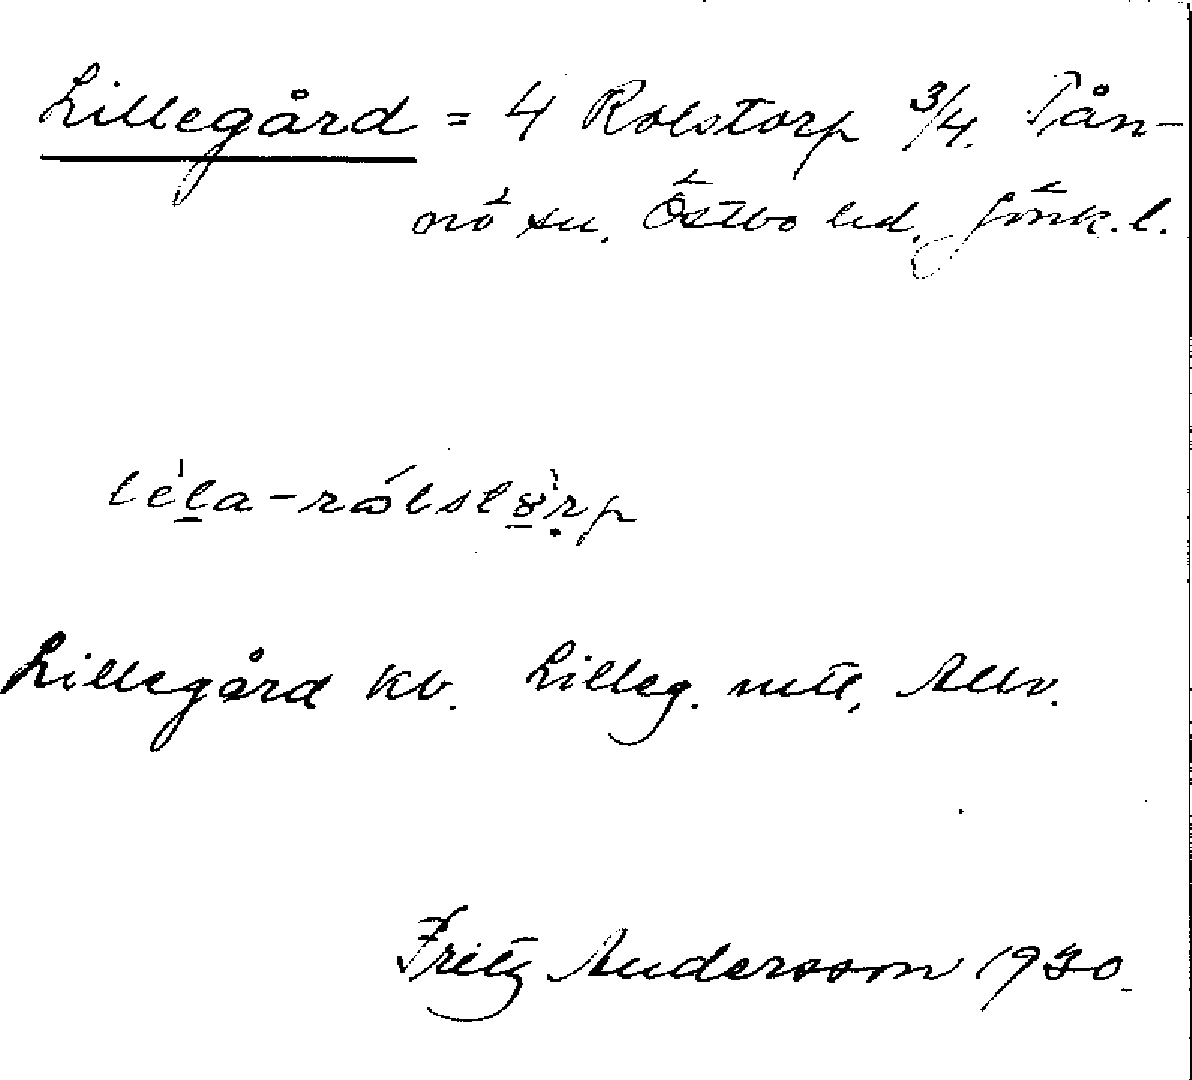 Lillegård = 4 Rolstorp 3/4. Tån-
nö sn. Östbo hd. Jönk. l.
lela-rålstörp
Lillegård kb. Lilleg. mtl, Allv.
Fritz Andersson 1930.